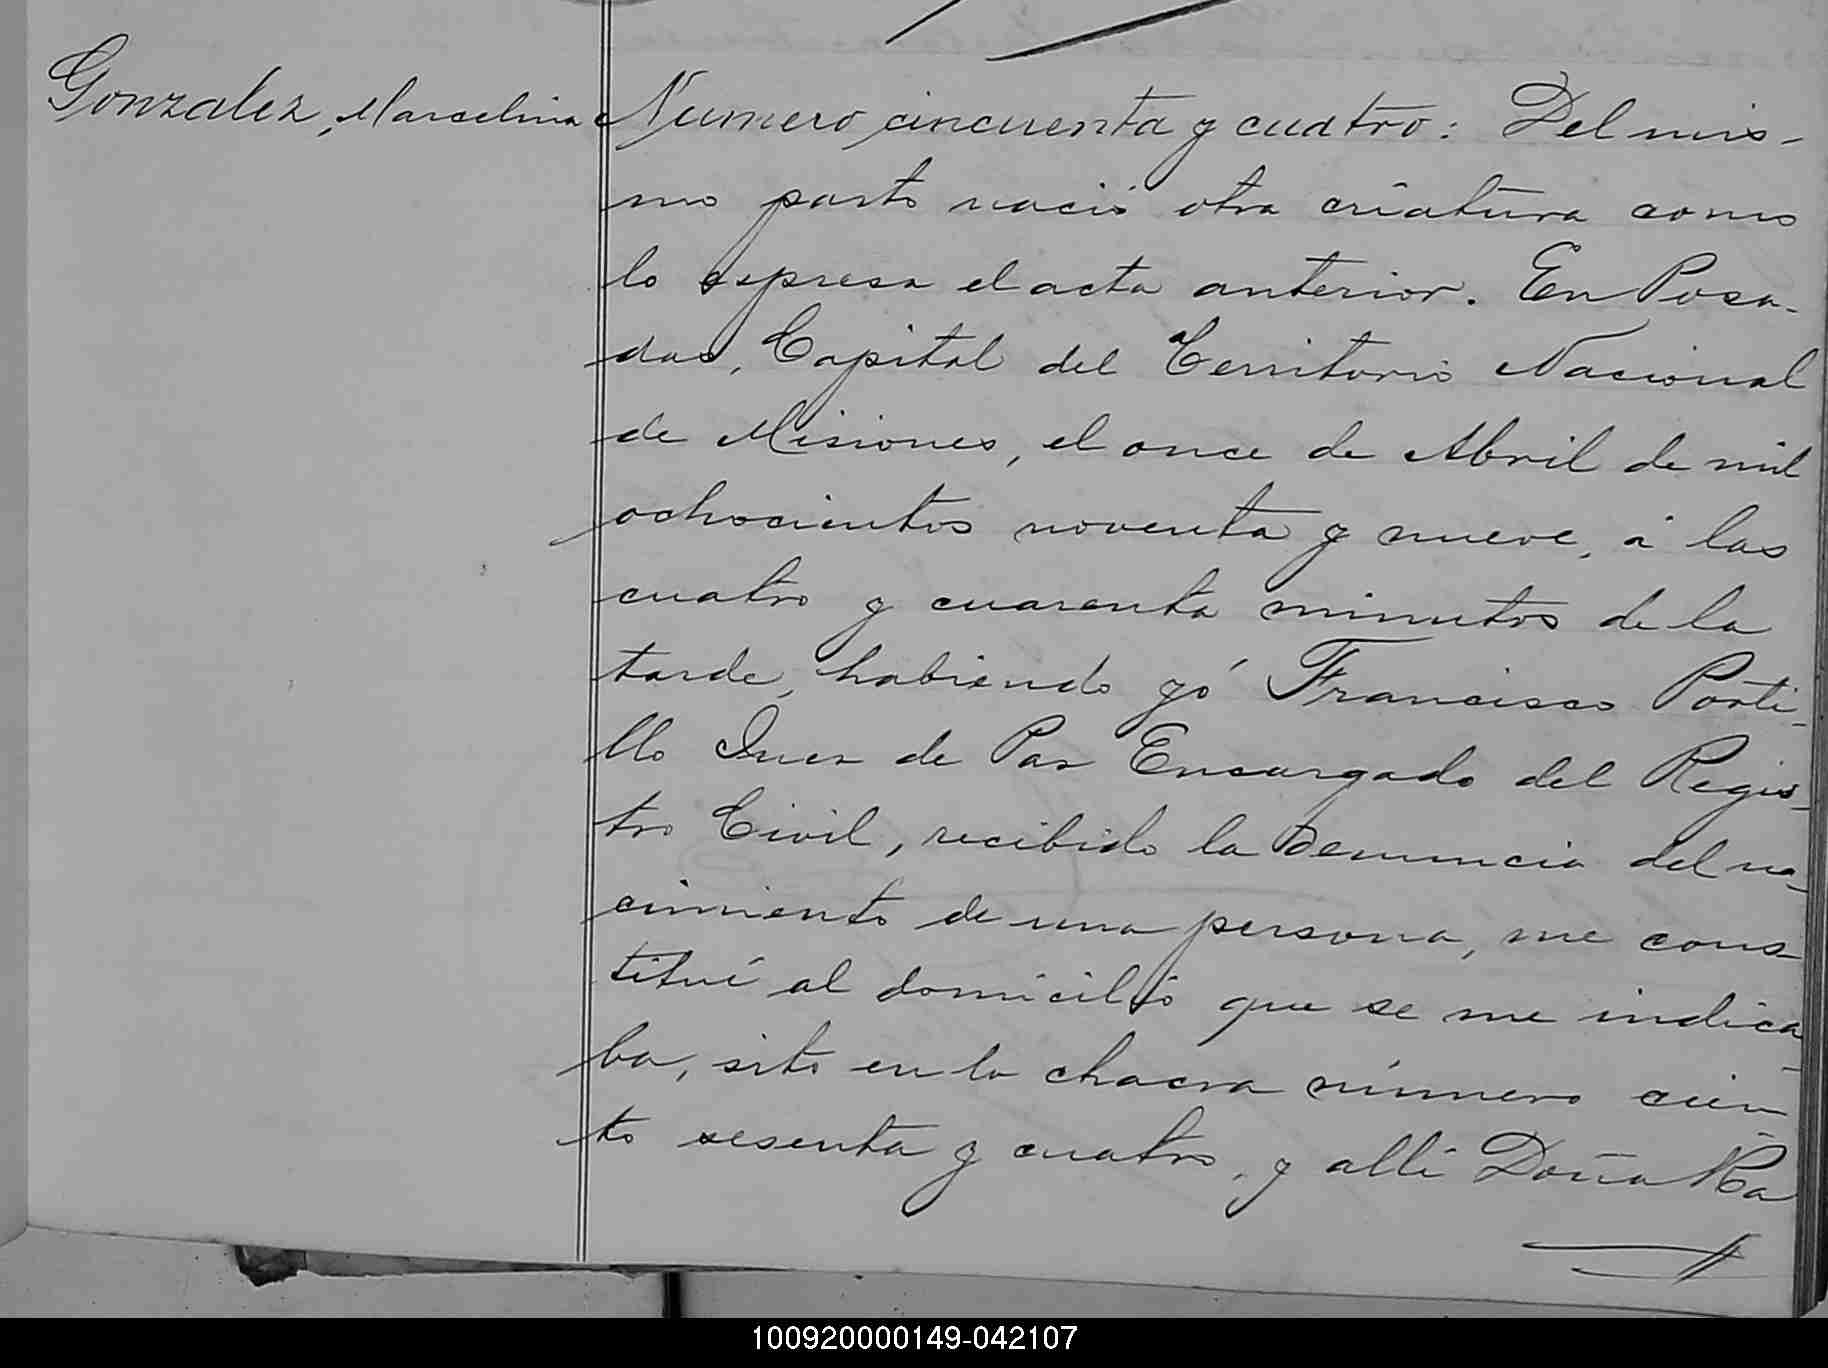 Gonzalez, Marcelina
Numero cincuenta y cuatro: Del mis-
mo parto nació otra criatura como
lo espresa el acta anterior. En Posa-
das, Capital del Territorio Nacional
de Misiones, el once de Abril de mil
ochocientos noventa y nueve, á las
cuatro y cuarenta minutos de la
tarde, habiendo yó Francisco Porti-
llo Juez de Paz Encargado del Regis-
tro Civil, recibido la Denuncia del na-
cimiento de una persona, me cons-
tituí al domicilio que se me indica-
ba, sito en la chacra número cien-
to sesenta y cuatro, y allí Doña Ra
100920000149-042107